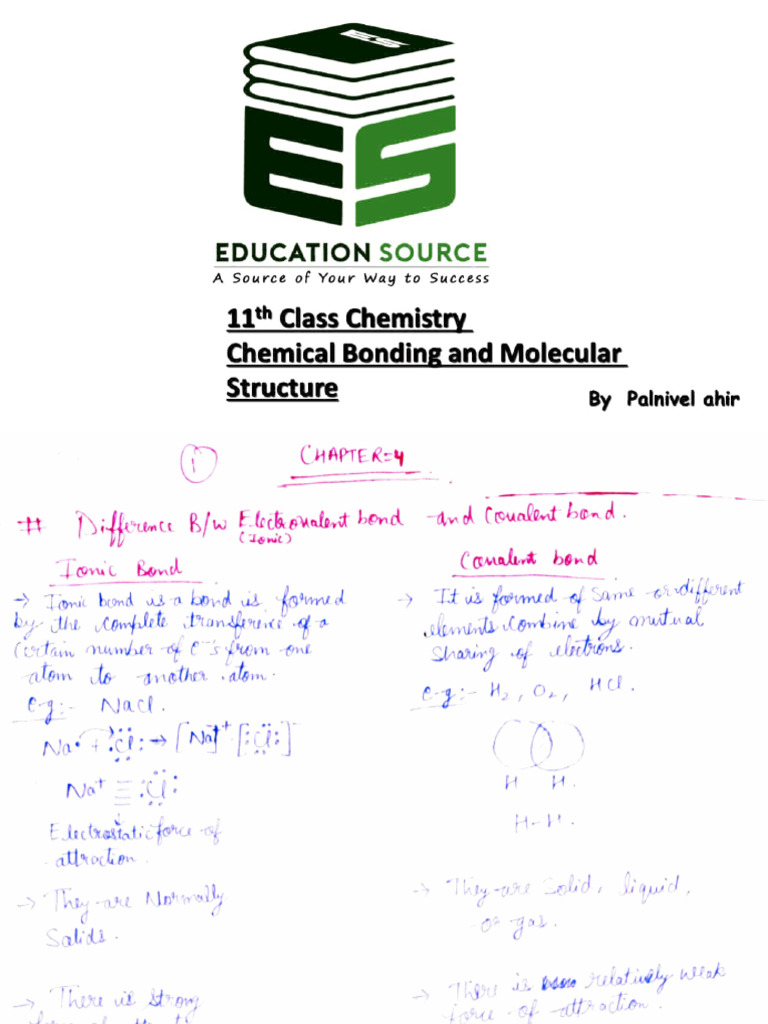 ES
ES
EDUCATION SOURCE
A Source of Your Way to Success
11th Class Chemistry
Chemical Bonding and Molecular
Structure
By Palnivel ahir
1
CHAPTER=4
# Difference B/w Electrovalent bond and Covalent bond.
(Ionic)
Ionic Bond
→ Ionic bond is a bond is formed
by the complete transference of a
certain number of e⁻'s from one
atom to another atom.
e-g:- NaCl.
Na• + :Cl: → [Na]⁺ [:Cl:]⁻
Na⁺ ≡ :Cl:
Electrostatic force of
attraction.
→ They are Normally
Salids.
→ There is strong
Covalent bond
→ It is formed of same or different
elements combine by mutual
sharing of electrons.
e-g:- H₂, O₂, HCl.
H H.
H-H.
→ They are Solid, liquid,
or gas.
→ There is relatively weak
force of attraction.